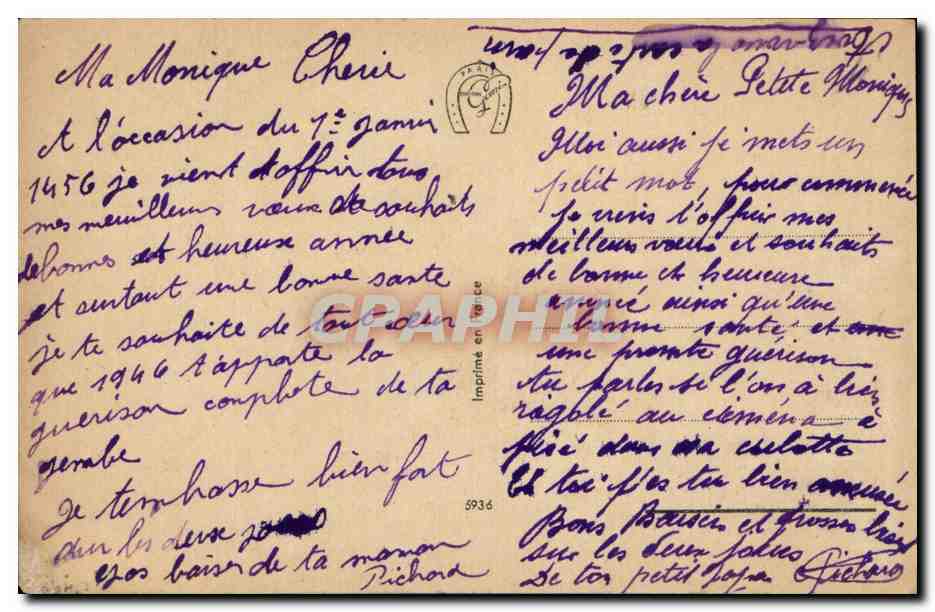 Ma Monique Cherie
A l'occasion du 1er Janvier
1456 je vient t'offrir tous
mes meuilleurs vœux de souhaits
de bonnes et heureuse année
et surtout une bonne sante
je te souhaite de tout cœur
que 1946 t'apporte la
guerison complete de ta
jembe
Je tembrasse bien fort
sur les deux
Gos baiser de ta maman
Pichard
PARIS
Ma chère Petite Monique
Moi aussi je mets un
petit mot, pour commencé
je viens t'offrir mes
meilleurs vœux et souhaits
de bonne et heureuse
année ainsi qu'une
bonne santé et
une prompte guérison
tu parles si l'on à bien
rigolé au cinéma à
pisé dans sa culotte
Et toi t'es tu bien amusée
Bons Baisers et grosses bises
sur les deux joues
De ton petit papa Pichard
Imprimé en France
5936
CARPHIL